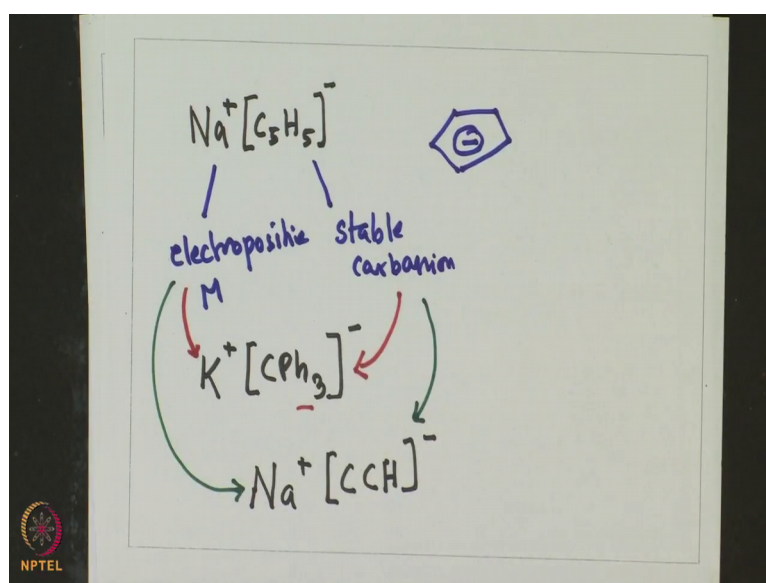 Na⁺[C₅H₅]⁻
⊖
electropositie stable
M carbanion
K⁺[CPh₃]⁻
Na⁺[CCH]⁻
NPTEL